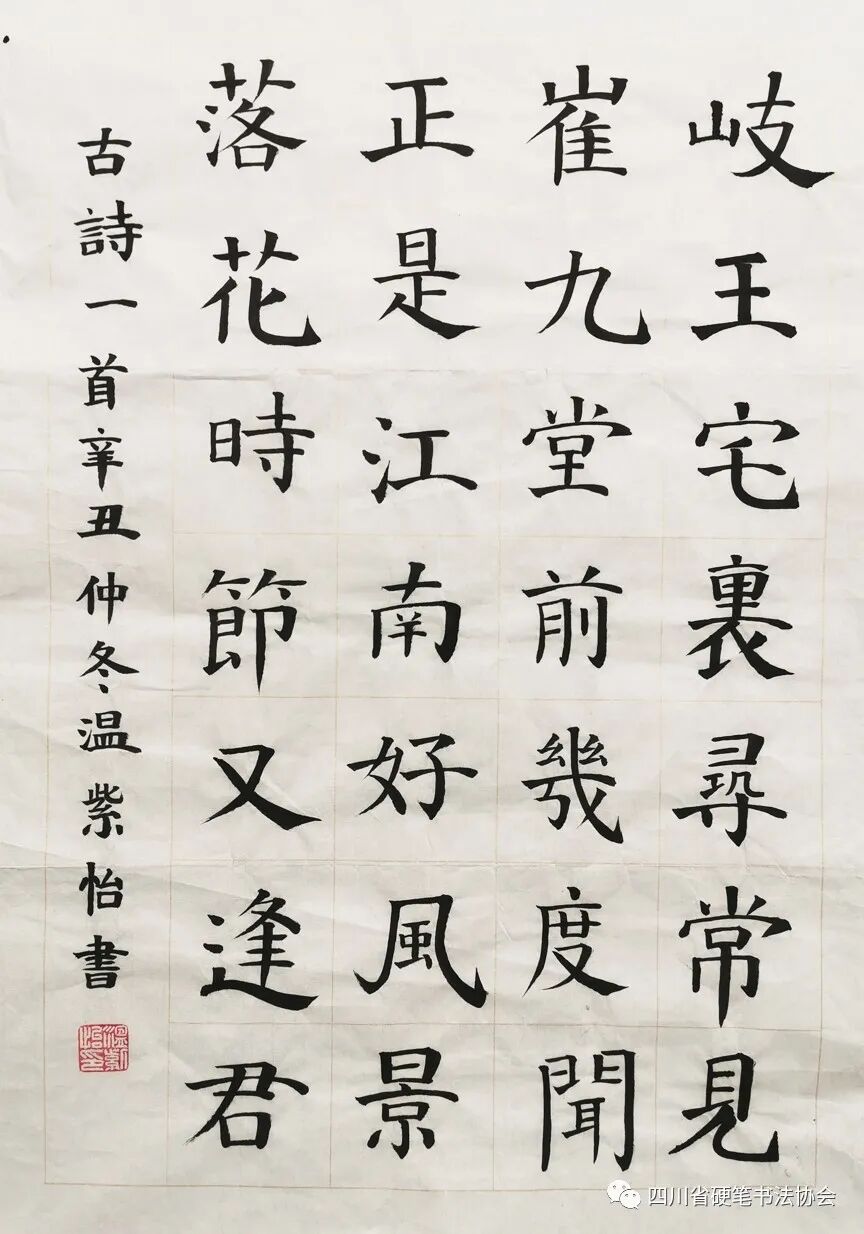 岐王宅裏尋常見
崔九堂前幾度聞
正是江南好風景
落花時節又逢君
古詩一首辛丑仲冬温紫怡書
四川省硬笔书法协会